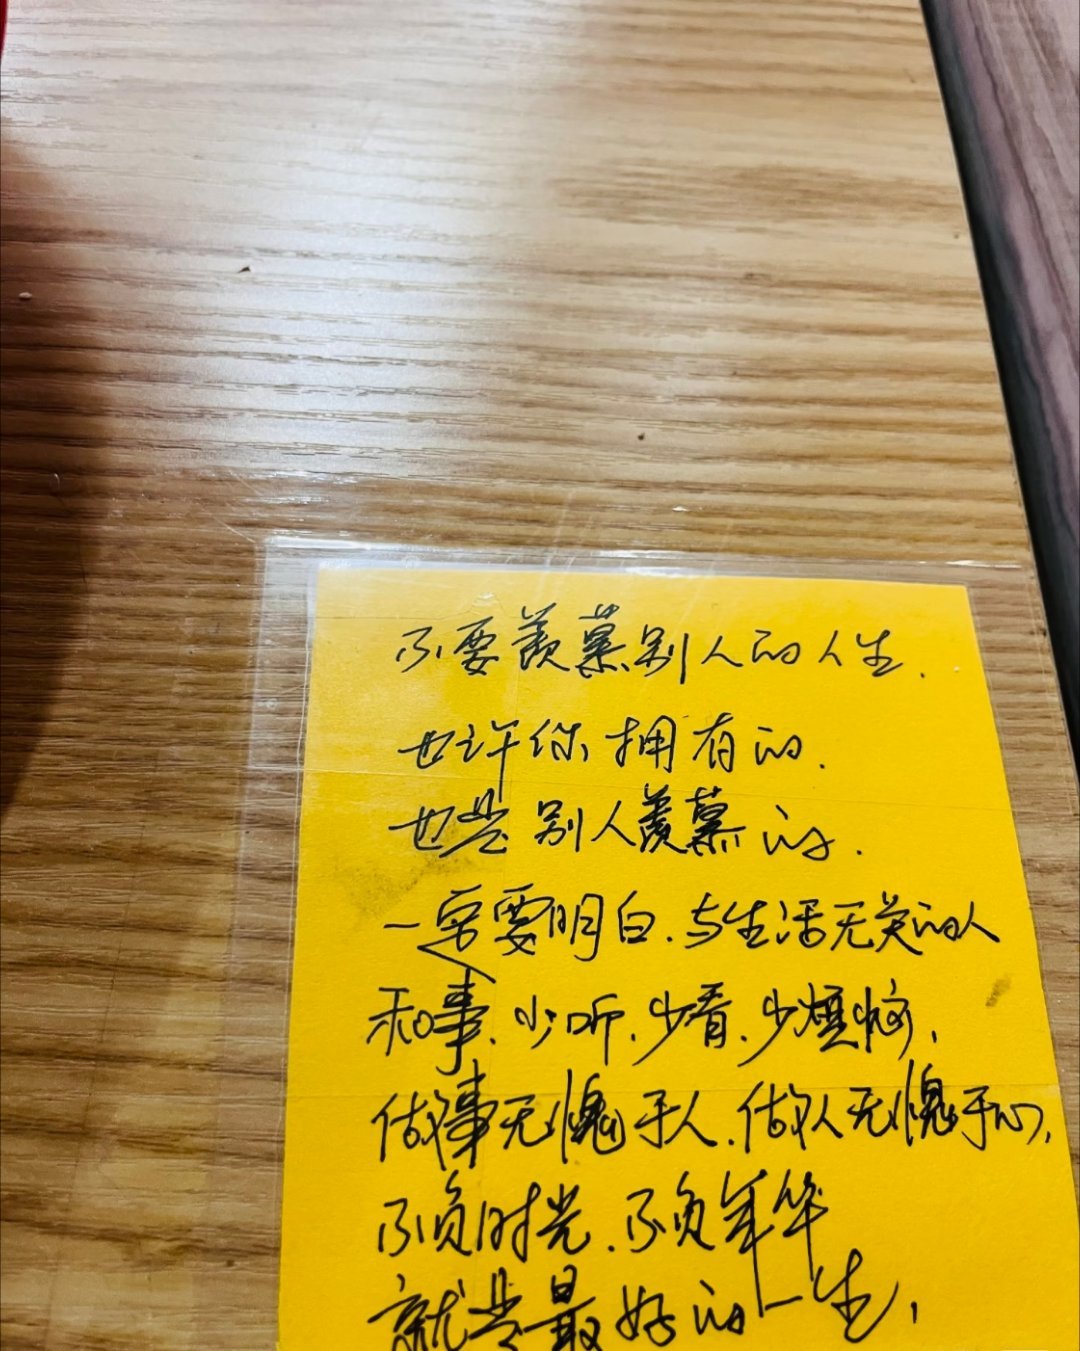 不要羡慕别人的人生.
也许你拥有的.
也是别人羡慕的.
一定要明白.与生活无关的人
和事、少听.少看.少烦恼,
做事无愧于人.做人无愧于心,
不负时光.不负年华
就是最好的一生,